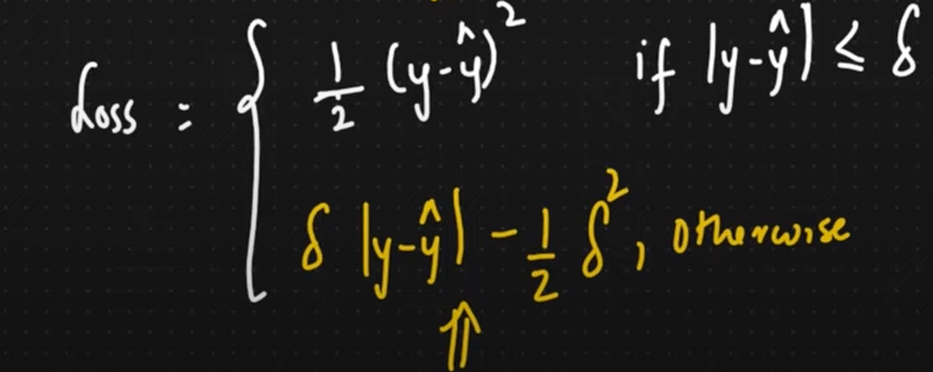 Loss = { 1/2 (y-ŷ)² if |y-ŷ| ≤ δ
δ |y-ŷ| - 1/2 δ², otherwise